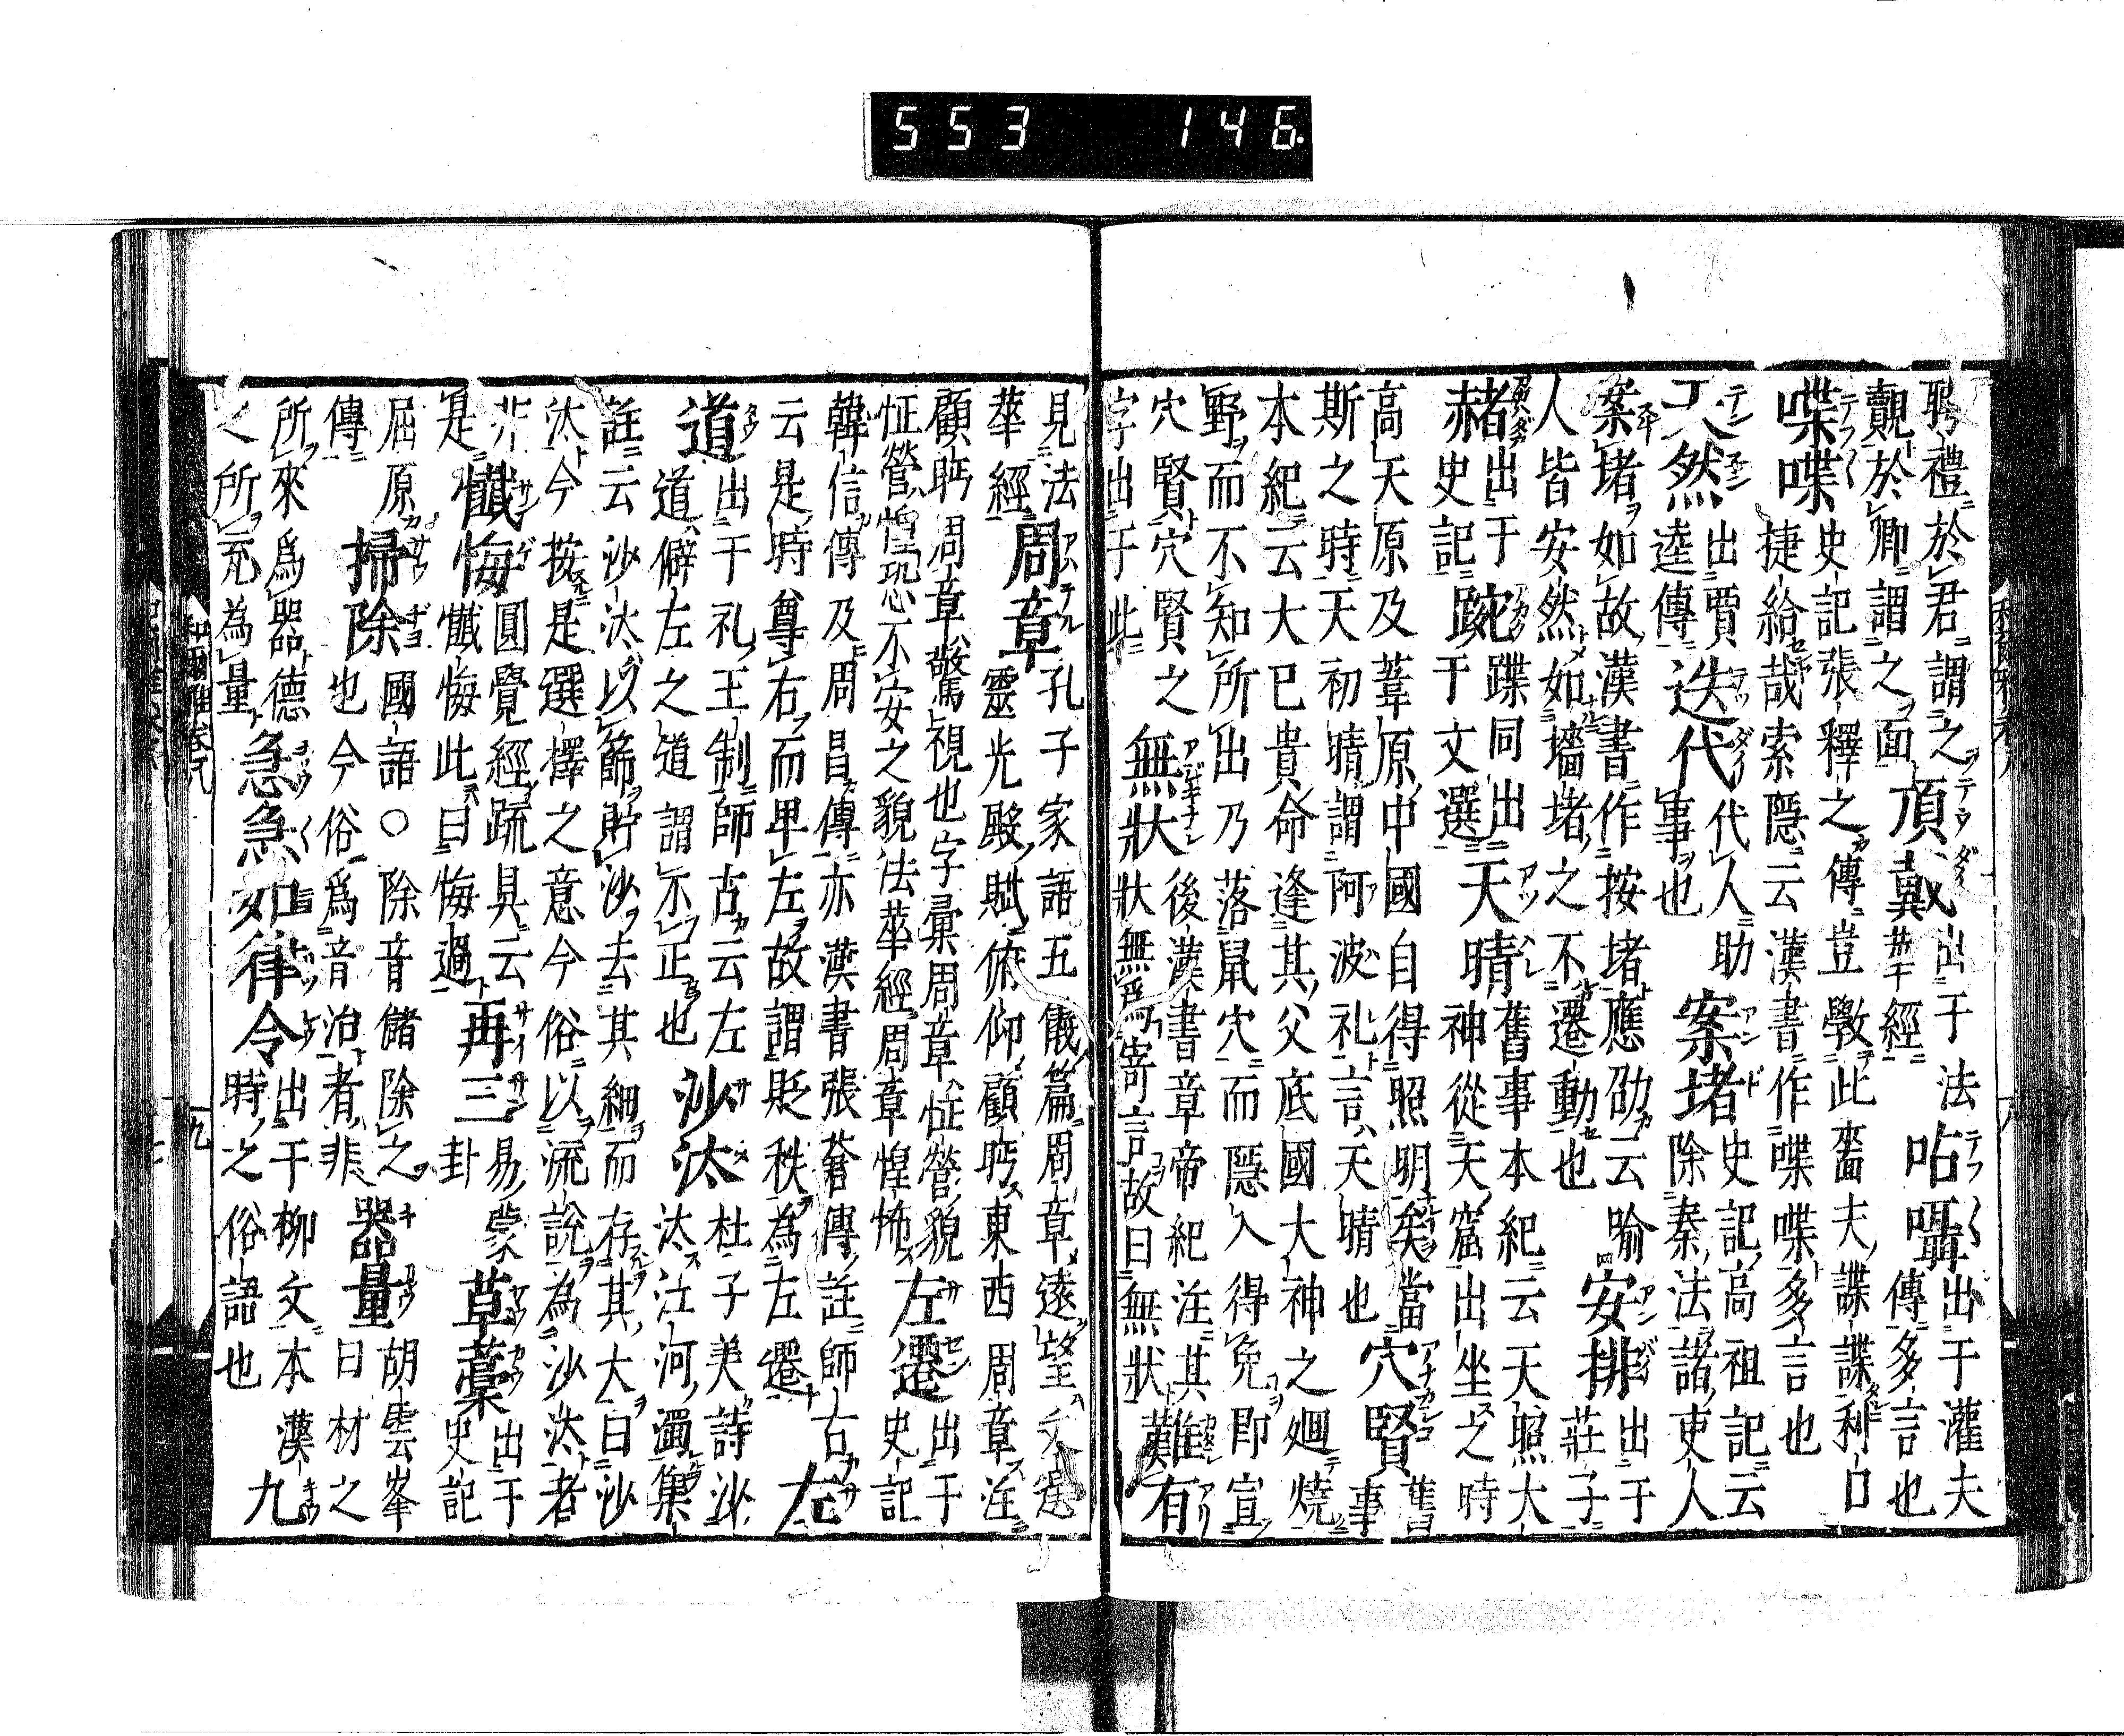 553 146.
聘禮於君謂之
覿於卿謂之面 頂戴 出于法華經 呫囁 出于灌夫傳多言也
喋喋 史記張釋之傳豈斅此嗇夫諜諜利口
捷給哉索隱云漢書作喋喋多言也
天然 出賈逵傳 迭代 代人助事也 案堵 史記高祖記云除秦法諸吏人
案堵如故漢書作按堵應劭云喻 安排 出于莊子
人皆安然如墻堵之不遷動也
赭 出于史記 跛 蹀同出于文選 天晴 舊事本紀云天照大神從天窟出坐之時
高天原及葦原中國自得照明矣當 穴賢 舊事
斯之時天初晴謂阿波礼言天晴也
本紀云大已貴命逢其父底國大神之廻燒
野而不知所出乃落鼠穴而隱入得免即宣
穴賢穴賢之 無狀 後漢書章帝紀注其難有
字出于此 狀無爲寄言故曰無狀
見法華經 周章 孔子家語五儀篇周章遠望文選
靈光殿賦俯仰顧眄東西周章注
顧眄周章驚視也字彙周章怔營貌 左遷 出于史記
怔營惶恐不安之貌法華經周章惶怖
韓信傳及周昌傳亦漢書張蒼傳註師古
云是時尊右而卑左故謂貶秩為左遷 左
道 出于礼王制師古云左道僻左之道謂不正也 沙汰 杜子美詩沙汰江河濁集
註云沙汰以篩貯沙去其細而存其大曰沙
汰今按是選擇之意今俗以流說為沙汰者
非是 懺悔 圓覺經疏具云懺悔此曰悔過 再三 易蒙卦 草藁 出于史記
屈原傳 掃除 國語○除音儲除之也今俗爲音治者非 器量 胡雲峯曰材之
所來爲器德之所充為量 急急如律令 出于柳文本漢時之俗語也
九
和爾雅卷八
九